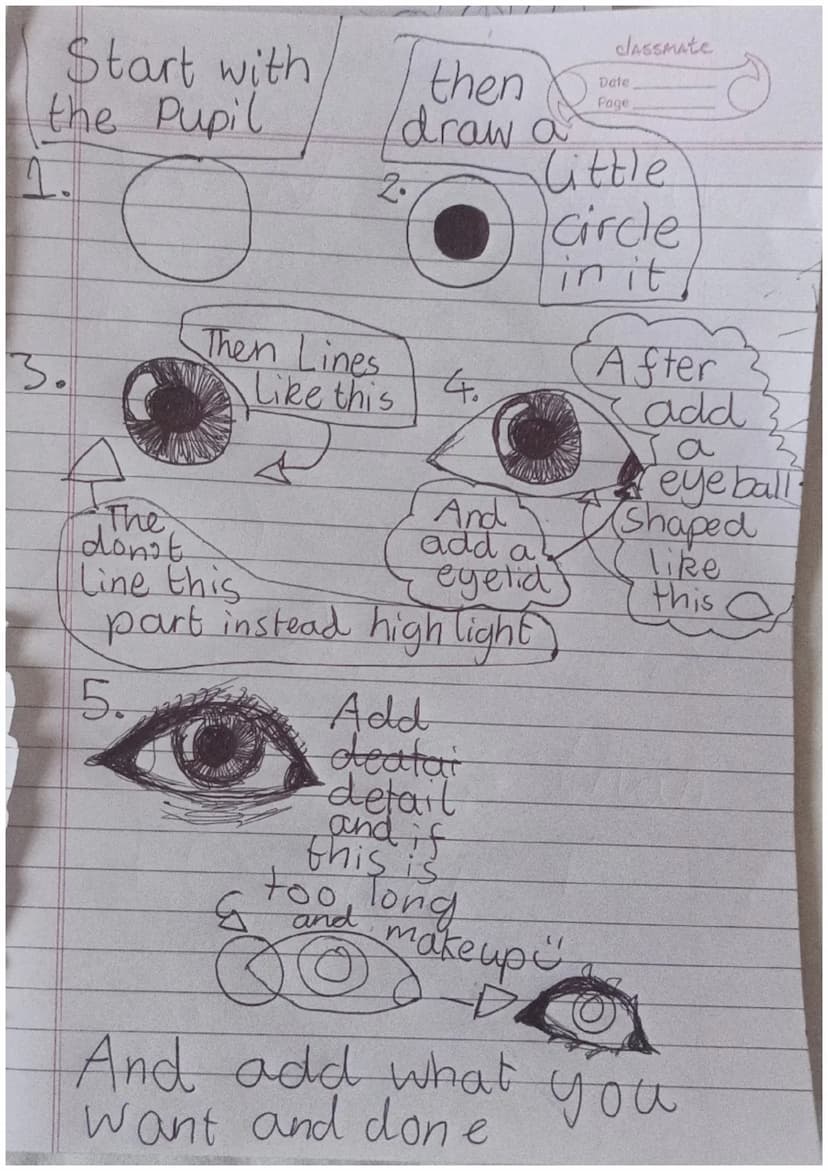 Start with
the Pupil
classmate
Date
Page
then
draw a
little
circle
in it
1.
2.
3.
Then Lines
Like this
4.
After
add
a
eyeball
shaped
like
this
And
add a
eyelid
The
donot
Line this
part instead highlight
5.
Add
deatai
detail
and if
this is
too long
and makeup
And add what you
want and done